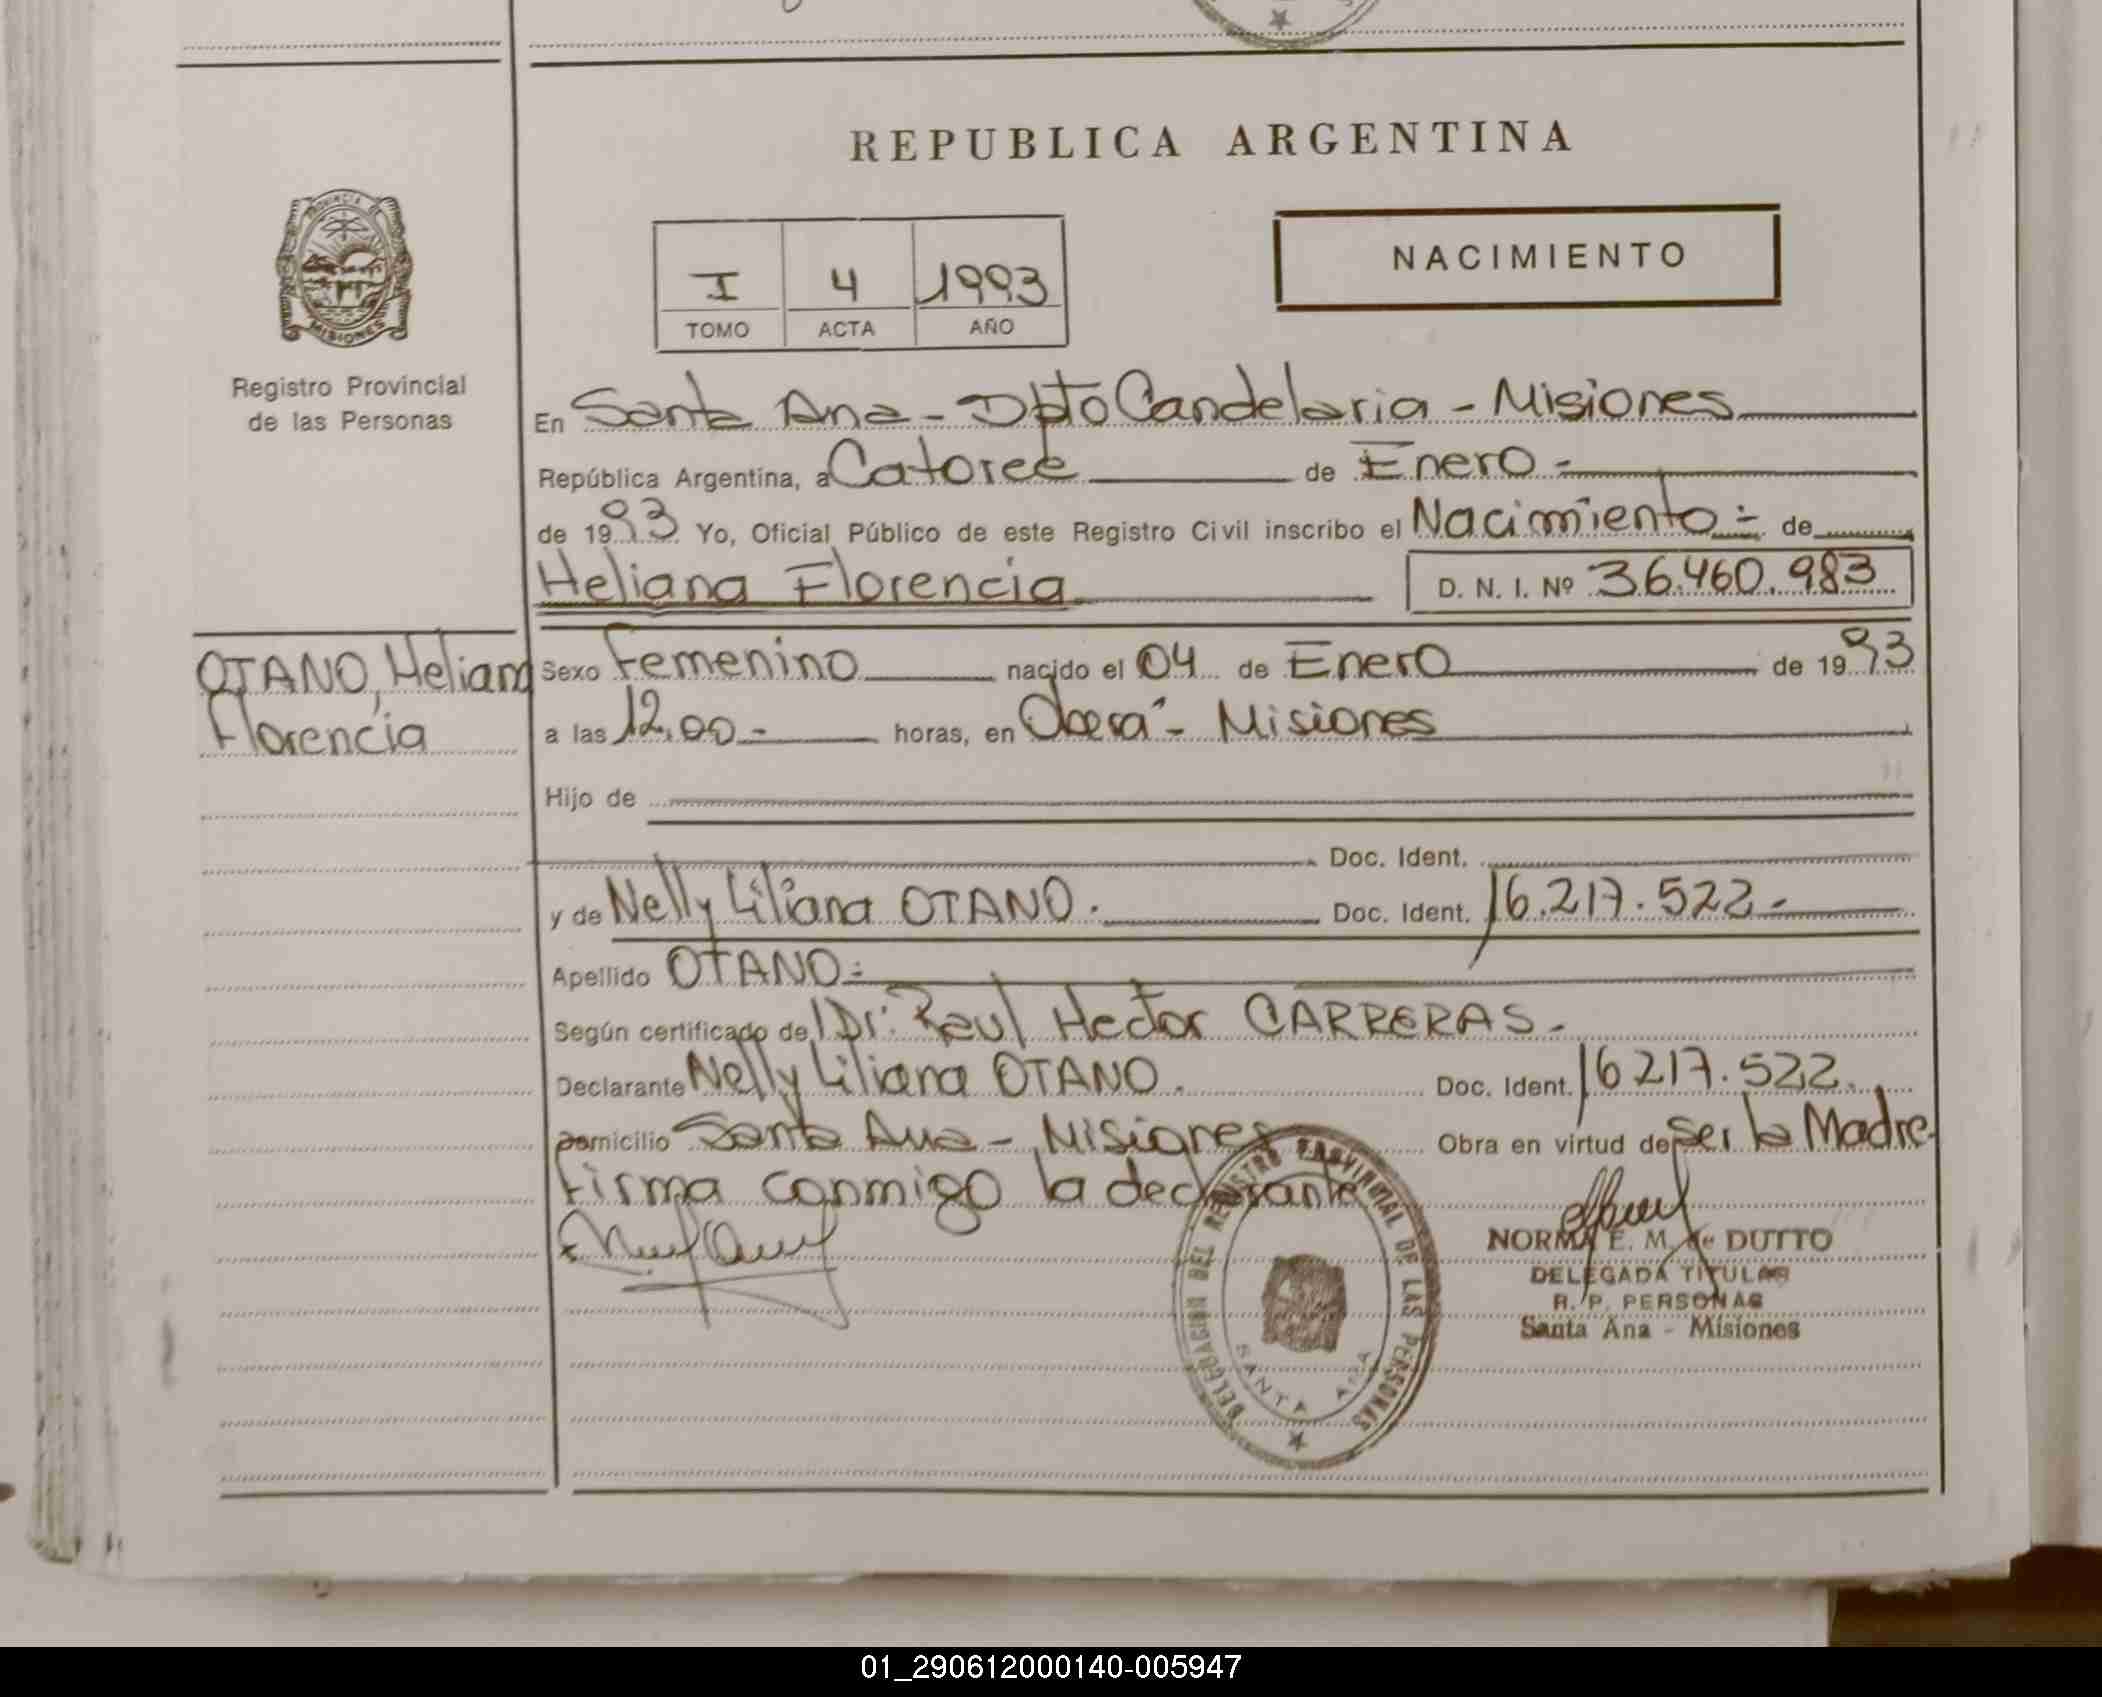 REPUBLICA ARGENTINA
PROVINCIA DE
MISIONES
Registro Provincial
de las Personas
I 4 1993
TOMO ACTA AÑO
NACIMIENTO
En Santa Ana - Dpto Candelaria - Misiones
República Argentina, a Catorce de Enero -
de 1993 Yo, Oficial Público de este Registro Civil inscribo el Nacimiento - de
Heliana Florencia D. N. I. Nº 36.460.983
OTANO, Heliana
Florencia
Sexo Femenino nacido el 04 de Enero de 1993
a las 12,00 - horas, en Oberá - Misiones
Hijo de
Doc. Ident.
y de Nelly Liliana OTANO. Doc. Ident. 16.217.522-
Apellido OTANO -
Según certificado del Dr. Raul Hector CARRERAS.-
Declarante Nelly Liliana OTANO. Doc. Ident. 16 217.522.
Domicilio Santa Ana - Misiones Obra en virtud de Ser la Madre-
Firma conmigo la declarante
DELEGACION DEL REGISTRO PROVINCIAL DE LAS PERSONAS
SANTA ANA
NORMA E. M. de DUTTO
DELEGADA TITULAR
R. P. PERSONAS
Santa Ana - Misiones
01_290612000140-005947